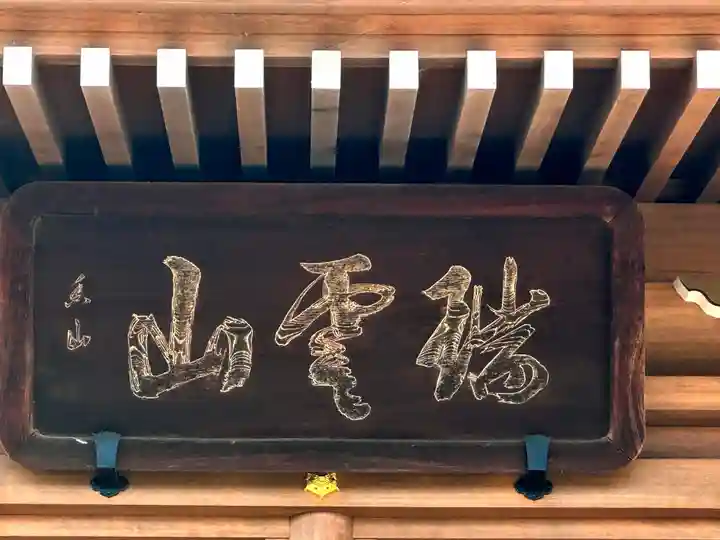 瑞雲山
魚山